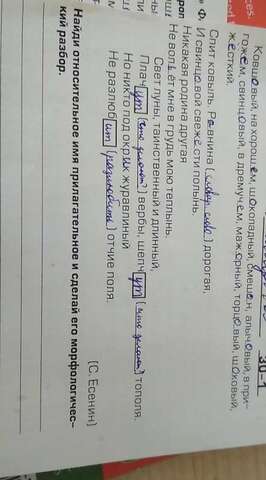 30-1
Ковшовый, на хорошем, шоколадный, смешон, алычовый, в при-
гожем, свинцовый, в дремучем, мажорный, торцовый, шоковый,
жёсткий.
Спит ковыль. Равнина (слову. слово) дорогая,
И свинцовой свежести полынь.
Никакая родина другая
Не вольёт мне в грудь мою теплынь.
Свет луны, таинственный и длинный,
Плачут (что делают?) вербы, шепчут (что делают?) тополя.
Но никто под окрик журавлиный
Не разлюбит (разлюбить) отчие поля.
(С. Есенин)
Найди относительное имя прилагательное и сделай его морфологичес-
кий разбор.